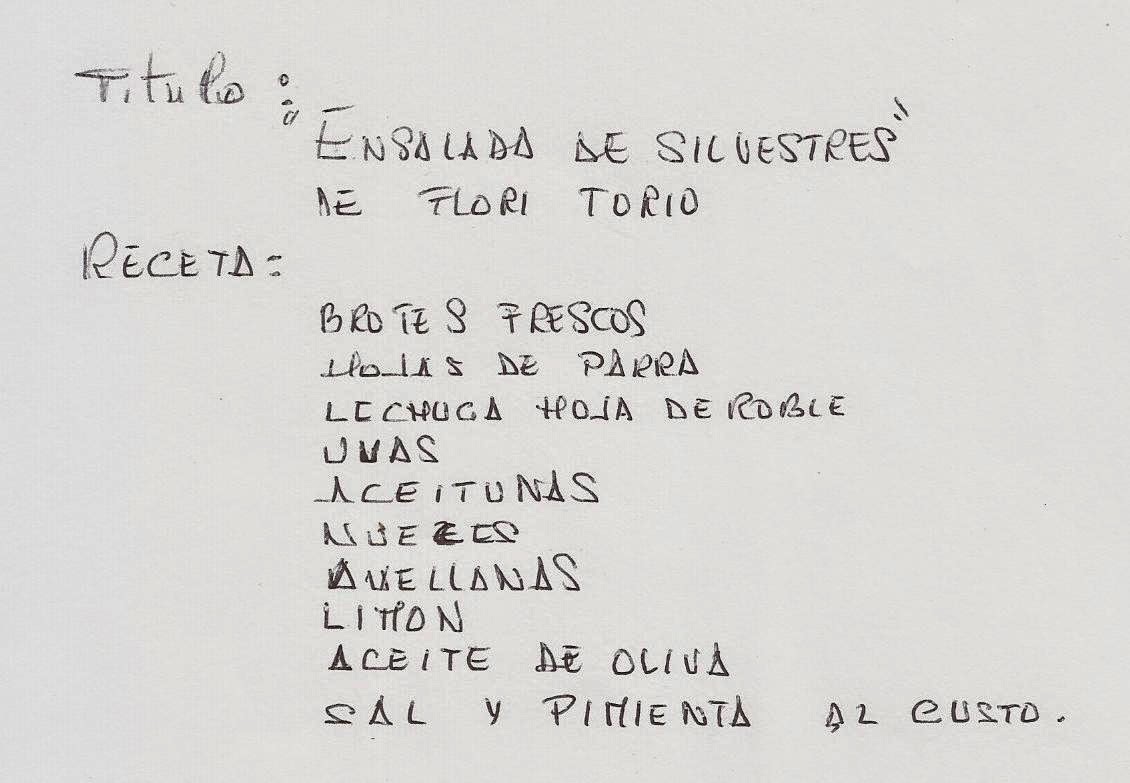 Titulo:
"ENSALADA DE SILVESTRES"
DE FLORI TORIO
RECETA:
BROTES FRESCOS
HOJAS DE PARRA
LECHUGA HOJA DE ROBLE
UVAS
ACEITUNAS
NUECES
AVELLANAS
LIMON
ACEITE DE OLIVA
SAL Y PIMIENTA AL GUSTO.